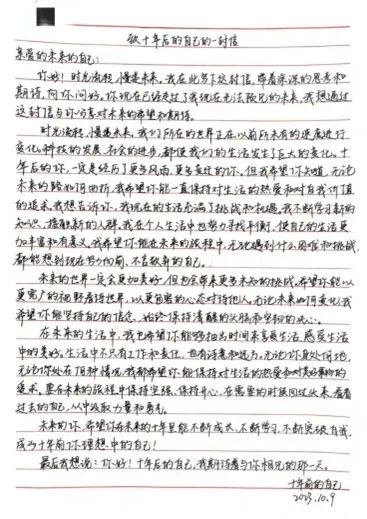 致十年后的自己的一封信
亲爱的未来的自己：
你好！时光流转，慢捷未来。我在此写下这封信，带着深深的思考和
期待，向你问好。你现在已经走过了我现在无法预见的未来，我想通过
这封信与你分享对未来的希望和期待。
时光流转，慢捷未来。我们所在的世界正在以前所未有的速度进行
变化。科技的发展、社会的进步，都使我们的生活发生了巨大的变化。十
年后的你，一定是经历了更多风雨，更多变迁的你，但我希望你知道，无论
未来的路如何曲折，我希望你能一直保持对生活的热爱和对自我价值
的追求。我想告诉你，我现在的生活充满了挑战和机遇。我不断学习新的
知识，接触新的人群。我在个人生活中也努力寻找平衡，使自己的生活更
加丰富和有意义。我希望你能在未来的旅程中，无论遇到什么困难和挑战，
都能想到现在努力向前、不言放弃的自己。
未来的世界一定会更加美好，但也会带来更多未知的挑战。希望你能以
更宽广的视野看待世界，以更包容的心态对待他人。无论未来如何变化，我
希望你能坚持自己的信念，始终保持清醒的头脑和坚韧的决心。
在未来的生活中，我也希望你能够抽出时间来享受生活，感受生活
中的美好。生活中不只有工作和责任，也有诗意和远方。无论你身处何地，
无论你处在何种情况，我都希望你能保持对生活的热爱和对美好事物的
追求。要在未来的旅程中保持坚强、保持开心，在需要的时候回过头来，看看
过去的自己，从中汲取力量和勇气。
未来的你，希望你在未来的十年里能不断成长、不断学习、不断突破自我，
成为十年前你理想中的自己！
最后我想说：你好！十年后的自己，我期待着与你相见的那一天。
十年前的自己
2023.10.9